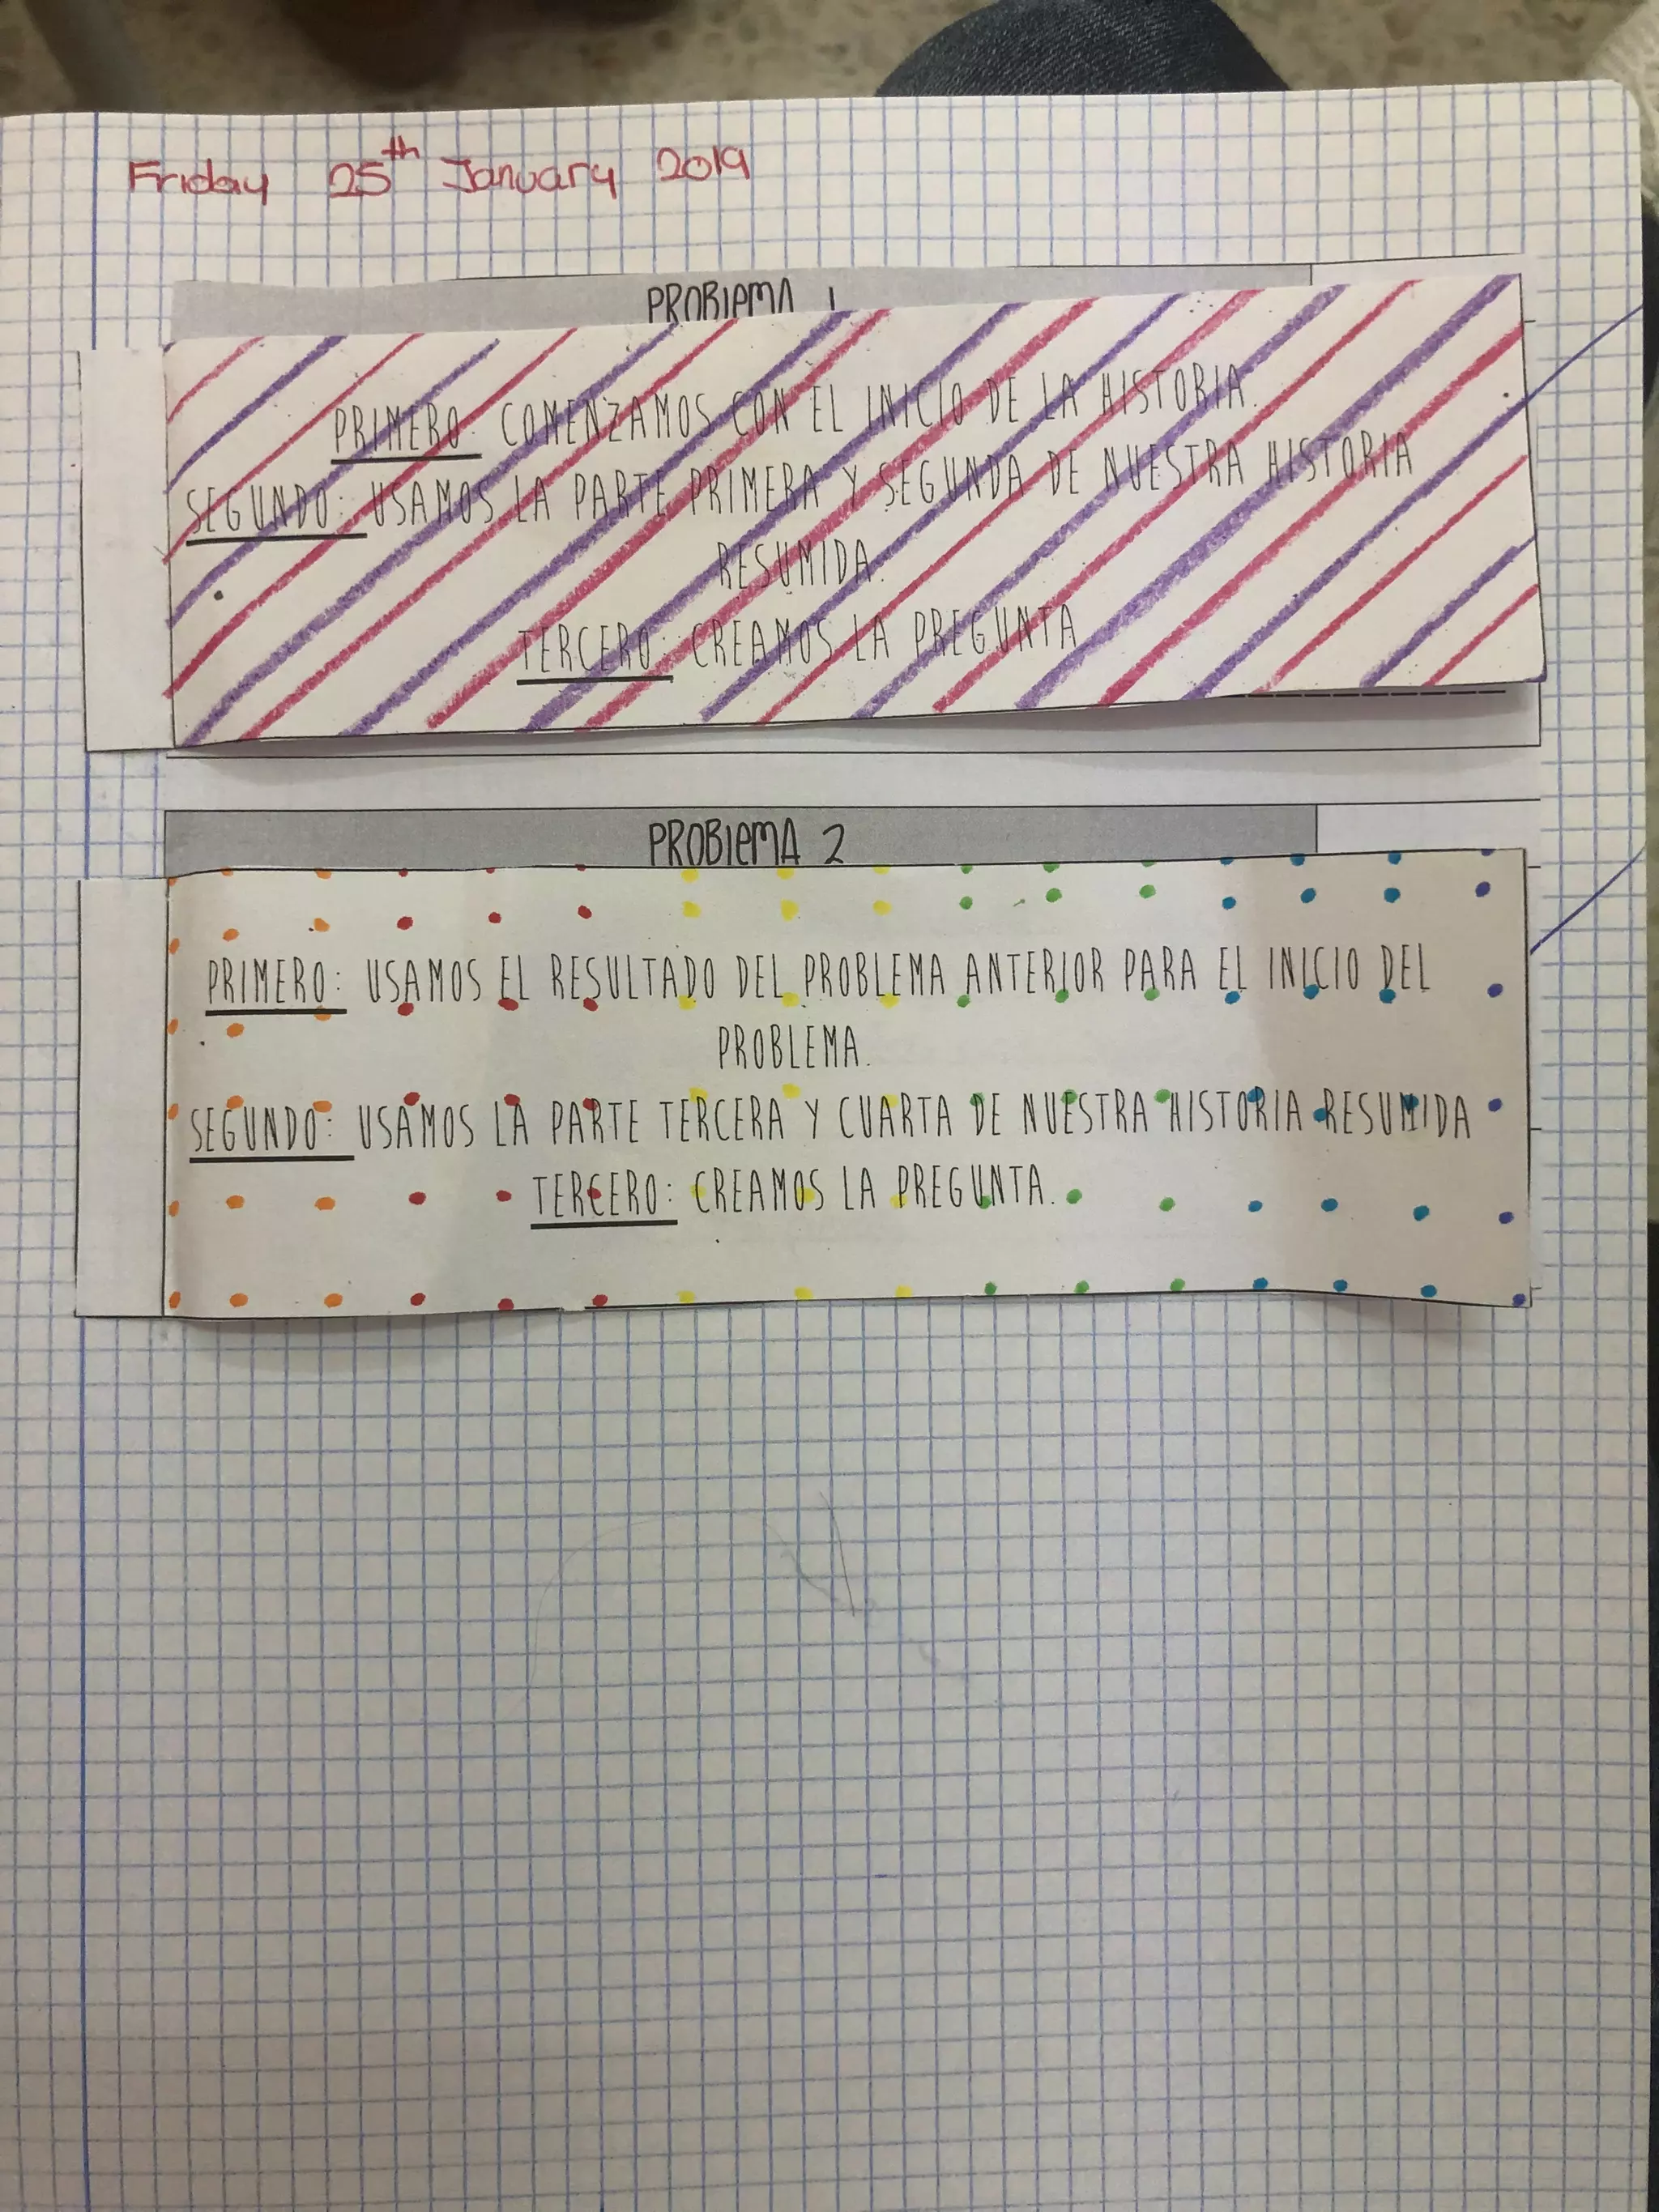 Friday 25th January 2019
PROBlEMA 1
PRIMERO: COMENZAMOS CON EL INICIO DE LA HISTORIA.
SEGUNDO: USAMOS LA PARTE PRIMERA Y SEGUNDA DE NUESTRA HISTORIA
RESUMIDA.
TERCERO: CREAMOS LA PREGUNTA
PROBlEMA 2
PRIMERO: USAMOS EL RESULTADO DEL PROBLEMA ANTERIOR PARA EL INICIO DEL
PROBLEMA.
SEGUNDO: USAMOS LA PARTE TERCERA Y CUARTA DE NUESTRA HISTORIA RESUMIDA
TERCERO: CREAMOS LA PREGUNTA.